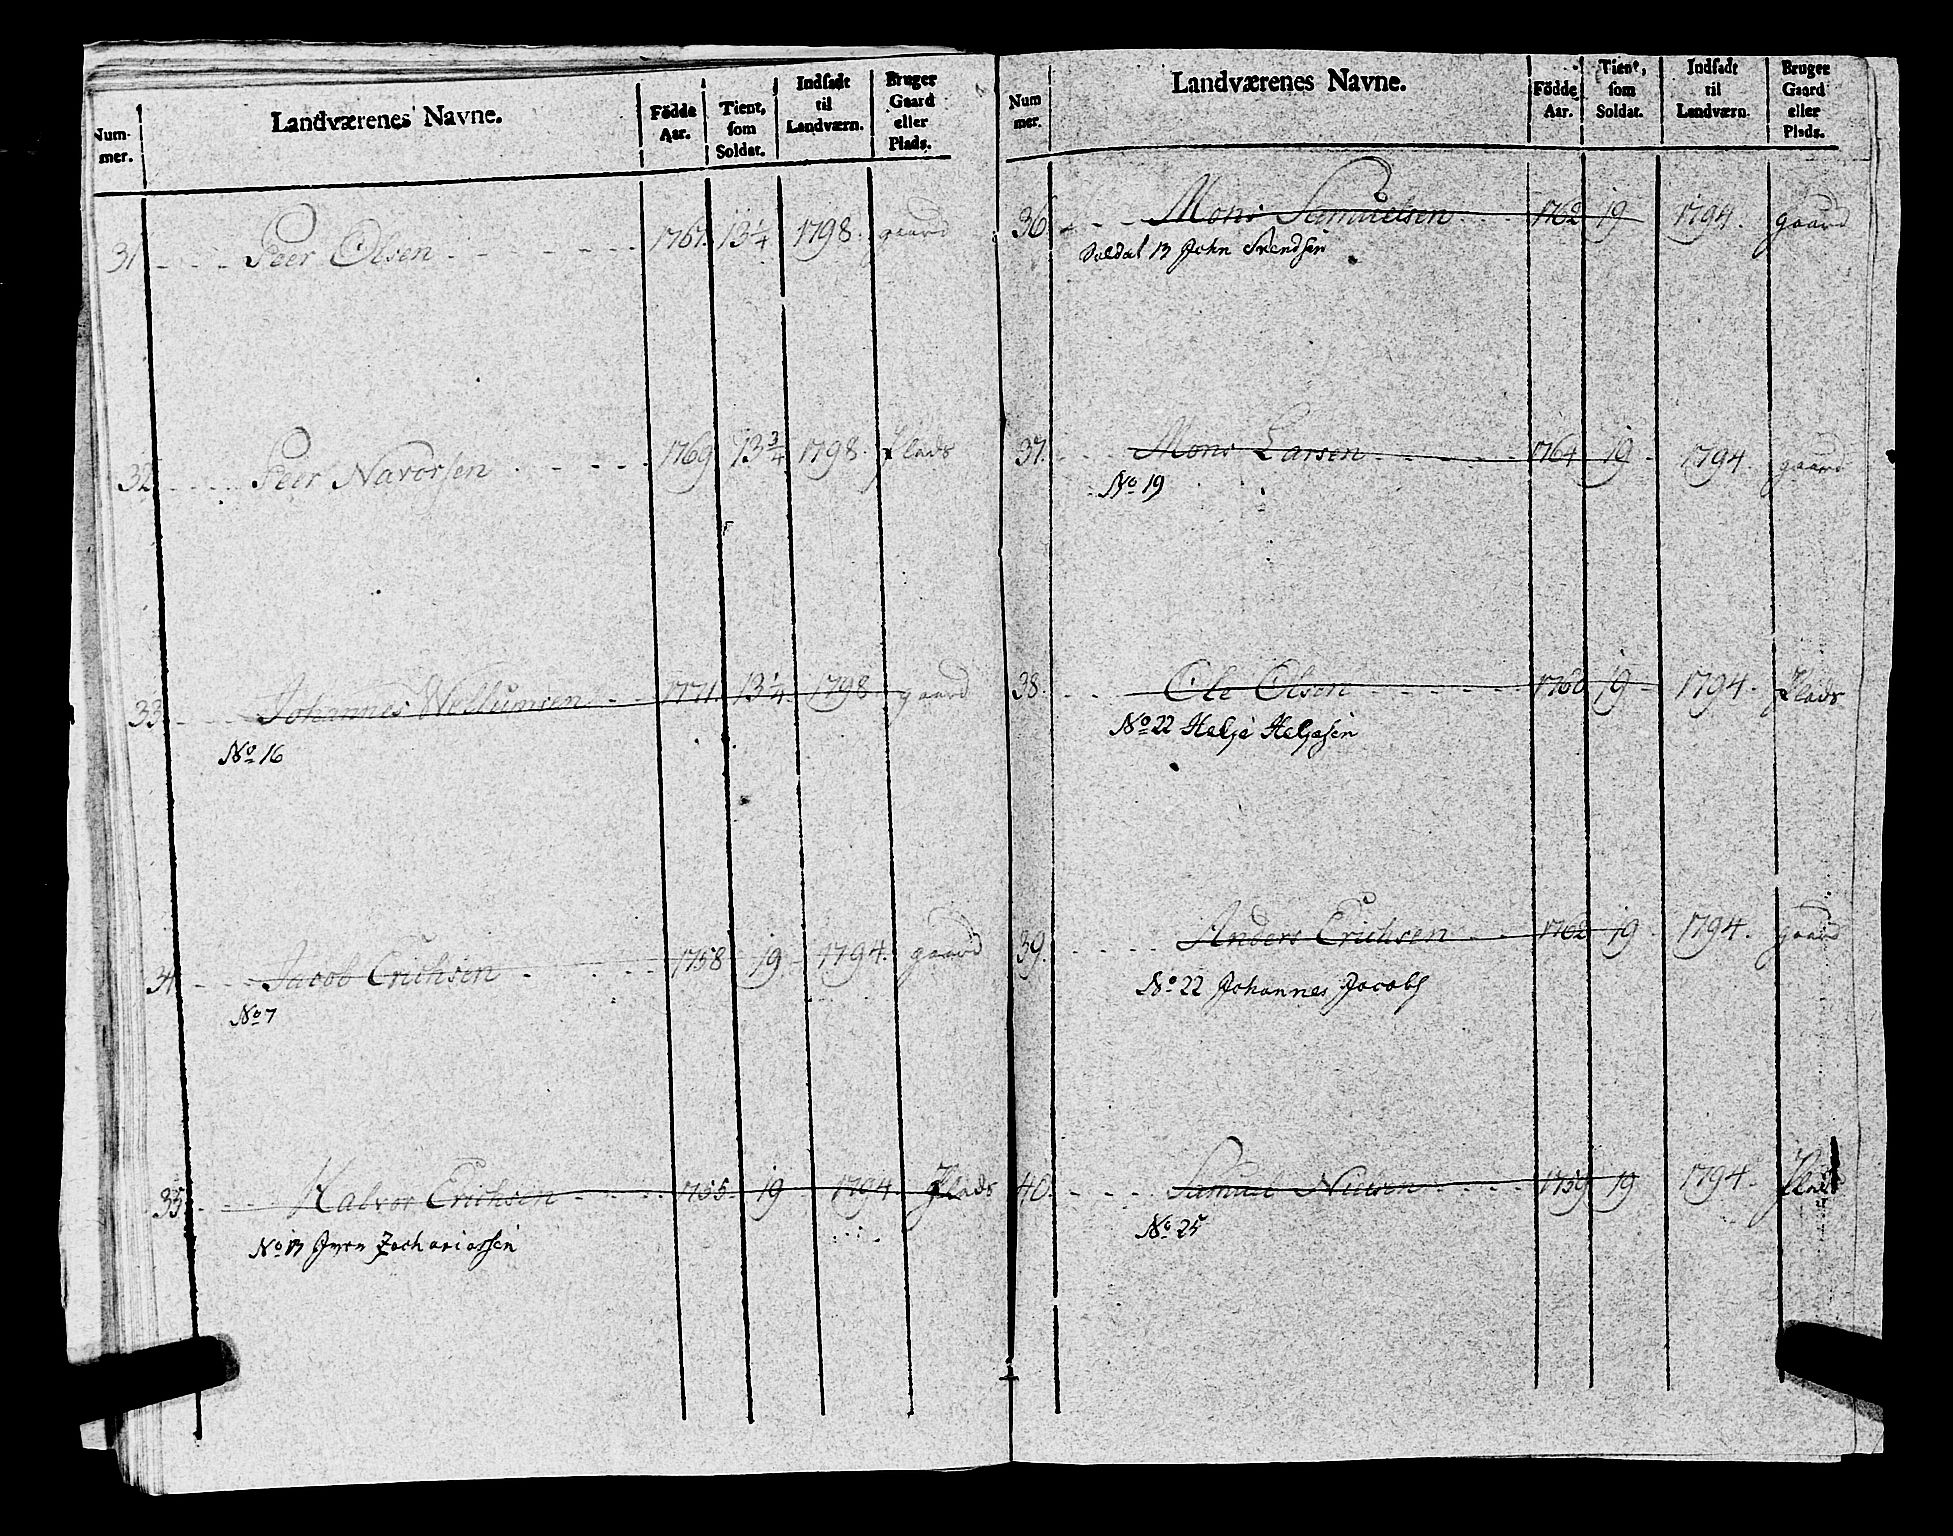 Num-
mer.
Landværenes Navne.
Födde
Aar.
Tient,
som
Soldat.
Indsadt
til
Landværn.
Bruger
Gaard
eller
Plads.
31 Peer Olsen 1767. 13 1/4 1798. gaard
32 Peer Navorsen 1769 13 3/4 1798. Plads
33 Johannes Wellumsen 1771. 13 1/4 1798 gaard
No 16
34 Jacob Erichsen 1758 19 1794. gaard
No 7
35 Halvor Erichsen 1755 19 1794 Plads
No 13 Iver Zachariassen
Num
mer.
Landværenes Navne.
Födde
Aar.
Tient,
som
Soldat.
Indsadt
til
Landværn.
Bruger
Gaard
eller
Plads.
36 Mons Samuelsen 1762 19 1794. gaard
Soldat 13 John Svendsen
37. Mons Larsen 1764 19 1794. gaard
No 19
38. Ole Olsen 1760 19 1794. Plads
No 22 Helje Heljesen
39. Anders Erichsen 1762 19 1794. gaard
No 22 Johannes Jacobs
40. Samuel Nielsen 1759 19 1794. Plads
No 25